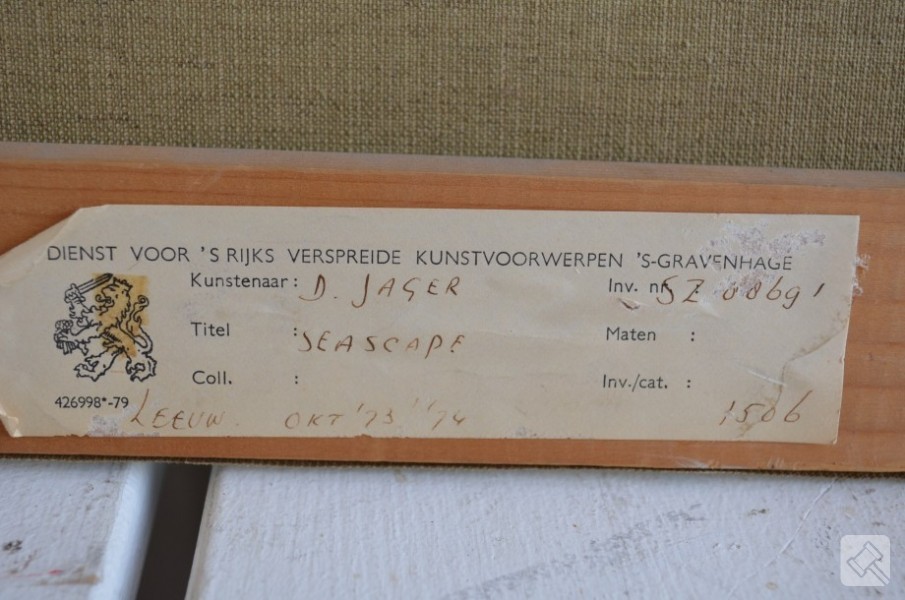 DIENST VOOR 'S RIJKS VERSPREIDE KUNSTVOORWERPEN 'S-GRAVENHAGE
Kunstenaar: D. JAGER Inv. nr. SZ
Titel : SEASCAPE Maten :
Coll. : Inv./cat. :
426998*-79 LEEUW. OKT '73 '74 1506